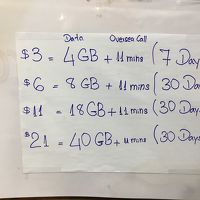 Data Oversea Call
$3 = 4GB + 11mins (7 Day
$6 = 8GB + 11mins (30 Da
$11 = 18GB + 11mins (30 Da
$21 = 40GB + 11 mins (30 Days